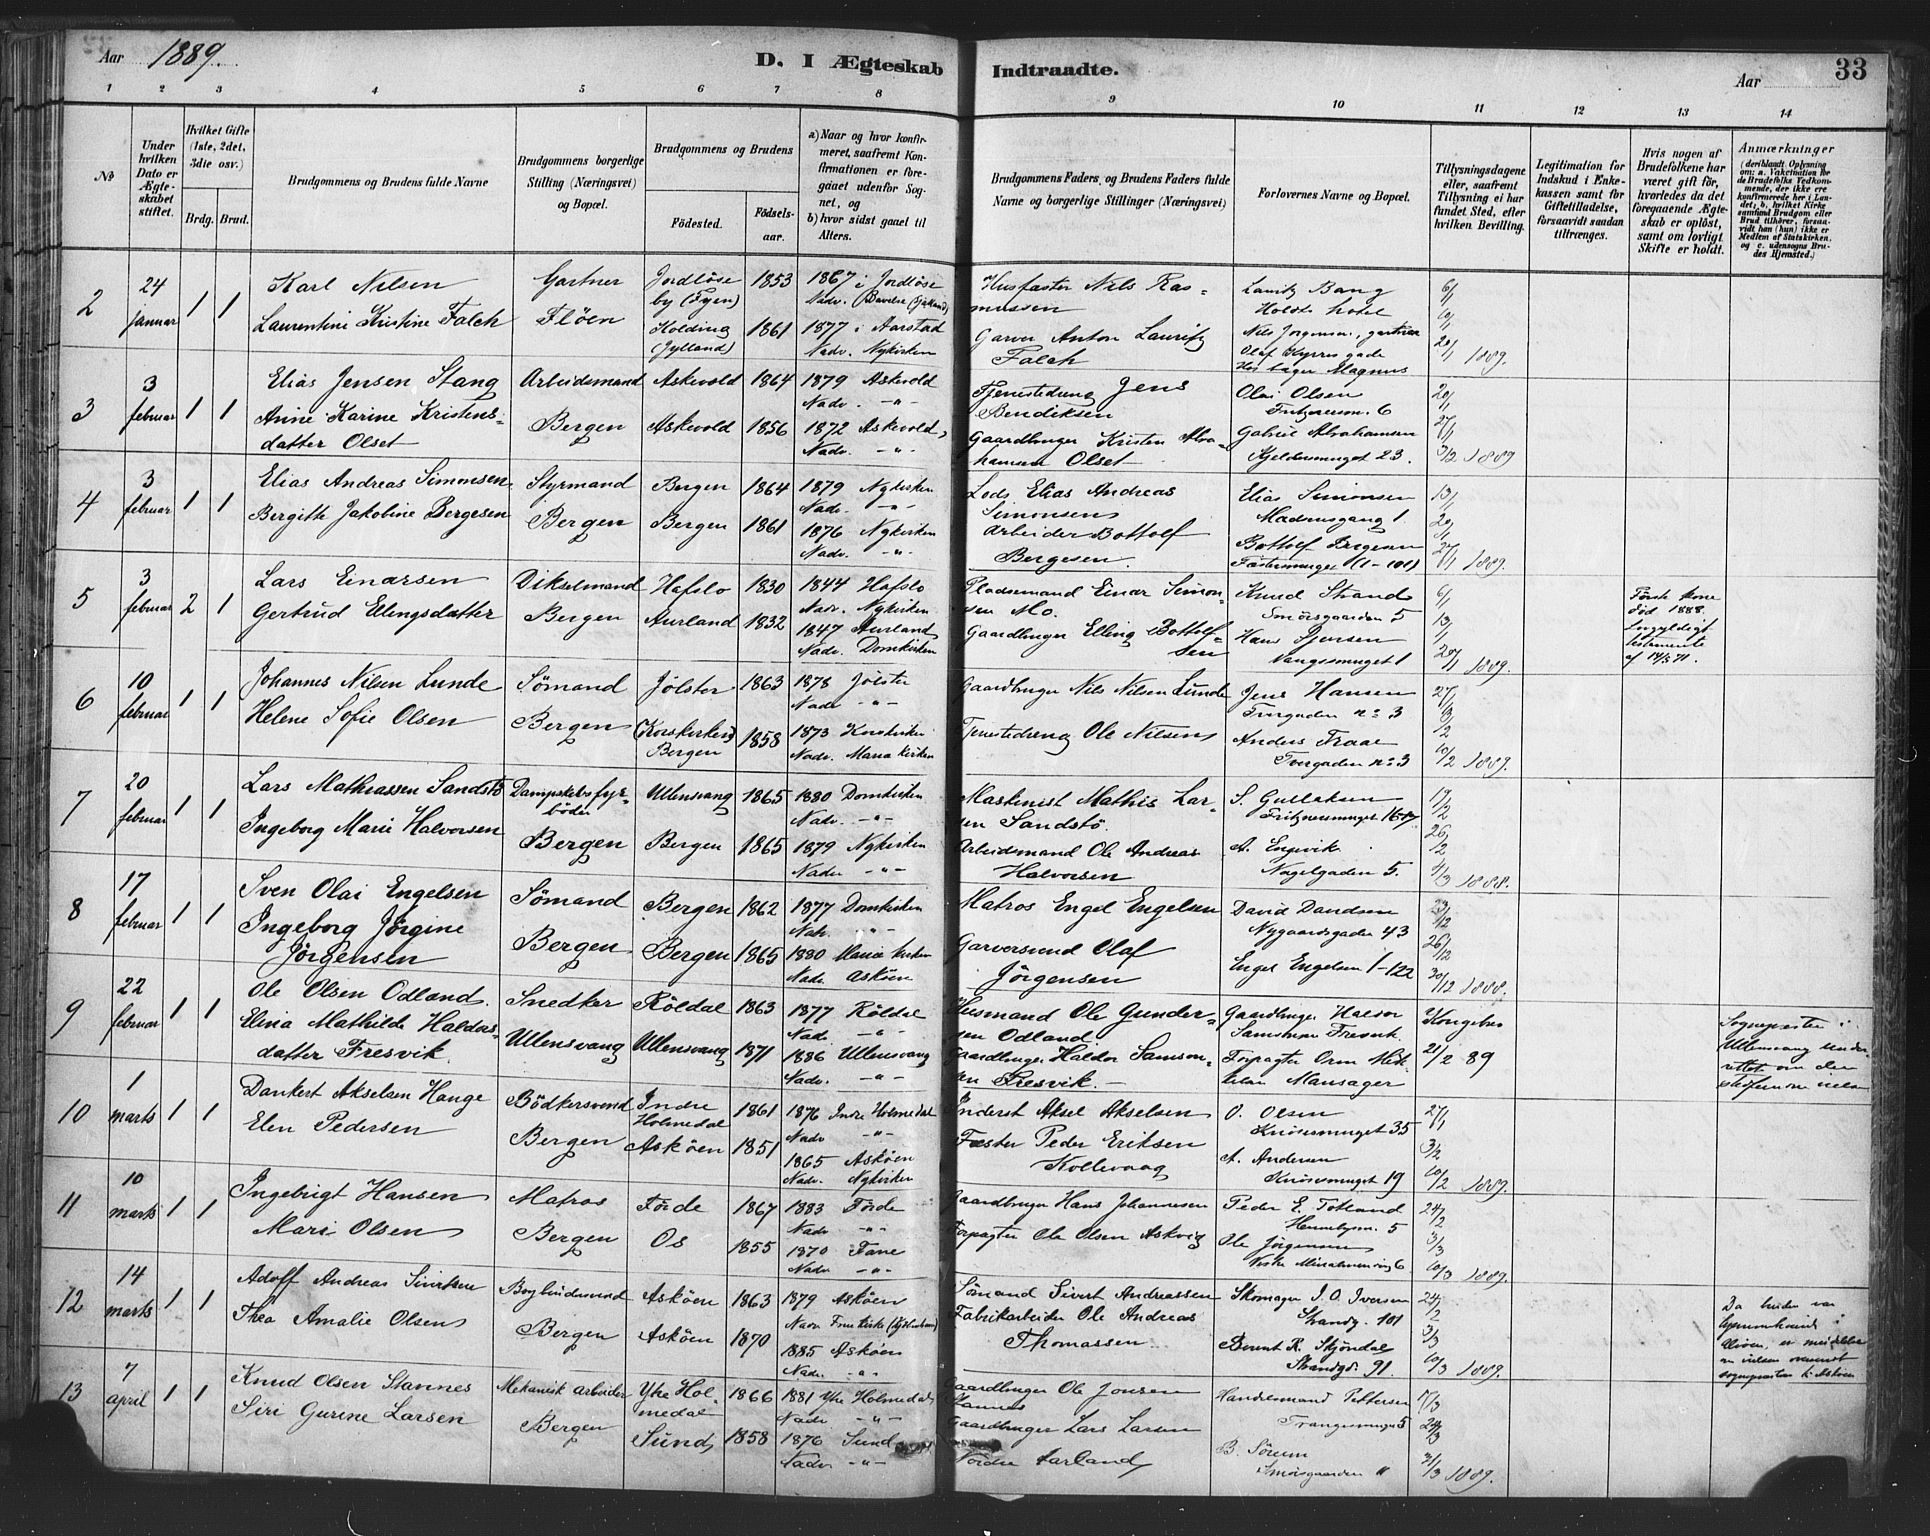 Aar 1889.
D. I Ægteskab Indtraadte.
Aar
33
1 2 3 4 5 6 7 8 9 10 11 12 13 14
№
Under hvilken Dato er Ægteskabet stiftet.
Hvilket Gifte (1ste, 2det, 3die osv.)
Brdg. Brud.
Brudgommens og Brudens fulde Navne
Brudgommens borgerlige Stilling (Næringsvei) og Bopæl.
Brudgommens og Brudens
Fødested.
Fødselsaar.
a) Naar og hvor konfirmeret, saafremt Konfirmationen er foregaaet udenfor Sognet, og
b) hvor sidst gaaet til Alters.
Brudgommens Faders og Brudens Faders fulde Navne og borgerlige Stillinger (Næringsvei)
Forlovernes Navne og Bopæl.
Tillysningsdagene eller, saafremt Tillysning ei har fundet Sted, efter hvilken Bevilling.
Legitimation for Indskud i Enkekassen samt for Giftetilladelse, forsaavidt saadan tiltrænges.
Hvis nogen af Brudefolkene har været gift før, hvorledes da det foregaaende Ægteskab er opløst, samt om lovligt Skifte er holdt.
Anmærkninger
(deriblandt Oplysning om: a. Vakcination for de Brudefolks Vedkommende, der ikke ere konfirmerede her i Landet; b. hvilket Kirkesamfund Brudgom eller Brud tilhører, forsaavidt han (hun) ikke er Medlem af Statskirken, og c. udensogns Brudes Hjemsted.)
2 24 Januar 1 1
Karl Nilsen
Laurentini Kristine Falch
Gartner
Fløen
Jordløse by (Fyen) 1853
Kolding (Jylland) 1861
1867 i Jordløse
Nadv.
1877 i Aarstad
Nadv. Nykirken
Husfaster Nils Rasmussen
Garver Anton Lauritz Falch
Lauritz Bang
Holdts hotel
Nils Jørgensen, gartner
Olaf Kyrres gade
6/1
20/1 1889.
3 3 februar 1 1
Elias Jensen Stang
Anne Karine Kristensdatter Olset
Arbeidsmand
Bergen
Askevold 1864
Askevold 1856
1879 Askevold
Nadv. -"-
1872 Askevold,
Nadv. -"-
Tjenestedreng Jens Bendiksen
Gaardbruger Kristen Abrahamsen Olset
Olai Olsen
Gabriel Abrahamsen
Kjeldersmuget 23.
20/1
27/1
3/2 1889
4 3 februar 1 1
Elias Andreas Simonsen
Bergitte Jakobine Bergesen
Styrmand
Bergen
Bergen 1864
Bergen 1861
1879 Nykirken
Nadv. -"-
1876 Nykirken
Nadv. -"-
Lods Elias Andreas Simonsen
Arbeider Bottolf Bergesen.
Elias Simonsen
Bottolf Bergesen
13/1
20/1
27/1 1889.
5 3 februar 2 1
Lars Einarsen
Gertrud Ellingsdatter
Bergen
Hafslo 1830
Aurland 1832
1844 Hafslo
Nadv. Nykirken
1847 Aurland
Nadv. Domkirken
Pladsemand Einar Simonsen Mo.
Gaardbruger Elling Bottolfsen
Knud Strand
Smørsgaarden 5
Vangsmuget 1
6/1
13/1
20/1 1889.
Første kone død 1888.
6 10 februar 1 1
Johannes Nilsen Lunde
Helene Sofie Olsen
Sømand
Bergen
Jølster 1863
(Korskirken) Bergen 1858
1878 Jølster
Nadv. -"-
1873 Korskirken
Nadv. Maria kirken
Gaardbruger Nils Nilsen Lunde
Tjenestedreng Ole Nilsen
Jens Hansen
Tvergaden no 3
Anders Traae
Tvergaden no 3
27/1
3/2
10/2 1889.
7 20 februar 1 1
Lars Mathiassen Sandstø
Ingeborg Marie Halvorsen
Dampskibsfyrbøder
Bergen
Ullensvang 1865
Bergen 1865
1880 Domkirken
Nadv. -"-
1879 Nykirken
Nadv -"-
Maskinist Mathis Larsen Sandstø.
Arbeidsmand Ole Andreas Halvorsen
S. Gullaksen
A. Engevik.
Nagelgaden 5.
19/2
26/2
4/3 1888.
8 17 februar 1 1
Sven Olai Engelsen
Ingeborg Jørgine Jørgensen
Sømand
Bergen
Bergen 1862
Bergen 1865
1877 Domkirken
Nadv. "
1880 Maria kirken
Nadv. Askøen
Matros Engel Engelsen
Garversvend Olaf Jørgensen
David Davidsen
Nygaardsgaden 43
Engel Engelsen 1-122
23/12
26/12
30/12 1888.
9 22 februar 1 1
Ole Olsen Odland.
Elina Mathilde Haldorsdatter Fresvik.
Snedker
Ullensvang
Røldal 1863
Ullensvang 1871
1877 Røldal
Nadv. -"-
1886 Ullensvang
Nadv. -"-
Husmand Ole Gundersen Odland
Gaardbruger Haldor Samsonsen Fresvik. —
Gaardbruger Haldor Samsonsen Fresvik
Forpagter Orm
Mansager
Kongebrev
21/2 89
Sognepresten i Ullensvang underrettet om den
10 1 marts 1 1
Dankert Akselsen Hauge
Elen Pedersen
Bødkersvend
Bergen
Indre Holmedal 1861
Askøen 1851
1876 Indre Holmedal
Nadv -"-
1865 Askøen
Nadv. Nykirken
Inderst Aksel Akselsen
Fæster Peder Eriksen Kollevaag
O. Olsen
Knøsesmuget 35
A. Andersen
Knøsesmuget 19
27/1
3/2
10/2 1889.
11 10 marts 1 1
Ingebrigt Hansen
Mari Olsen
Matros
Bergen
Førde 1867
Os 1855
1883 Førde
Nadv -"-
1870 Fane
Nadv -"-
Gaardbruger Hans Johannesen
Forpagter Ole Olsen Askvig
Peder E. Totland
Ole Jørgensen
24/2
3/3
10/3 1889.
12 14 marts 1 1
Adolf Andreas Sivertsen
Thea Amalie Olsen
Bogbindersvend
Bergen
Askøen 1863
Askøen 1870
1879 Askøen
Nadv Frue kirke (Kjøbenhavn)
1885 Askøen
Nadv. -"-
Sømand Sivert Andreassen
Fabrikarbeider Ole Andreas Thomassen
Skomager J. O. Iversen
Strandg. 101
Berent R. Skjøndal
Strandgd. 91.
24/2
3/3
10/3 1889.
Da bruden var
13 7 april 1 1
Knud Olsen Stannes
Siri Gurine Larsen
Mekanisk Arbeider
Bergen
Ytre Holmedal 1866
Sund 1858
1881 Ytre Holmedal,
Nadv -"-
1876 Sund
Nadv -"-
Gaardbruger Ole Jonsen Stannes
Gaardbruger Lars Larsen Nordre Aarland
Handelsmand Pettersen
B. Sørum
Smørsgaarden "
17/3
24/3
31/3 1889.